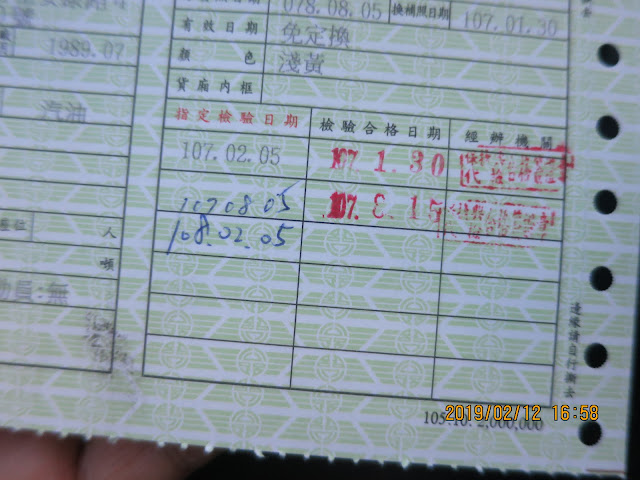 078.08.05 換補照日期 107.01.30
號
有效日期 免定換
1989.07 顏色 淺黃
貨廂內框
汽油
指定檢驗日期 檢驗合格日期 經辦機關
107.02.05 107 1. 30
107 08 05 107. 8. 15
108.02.05
座位 人
噸
動員:無
邊緣請自行撕去
105.10. 2,000,000
2019/02/12 16:58